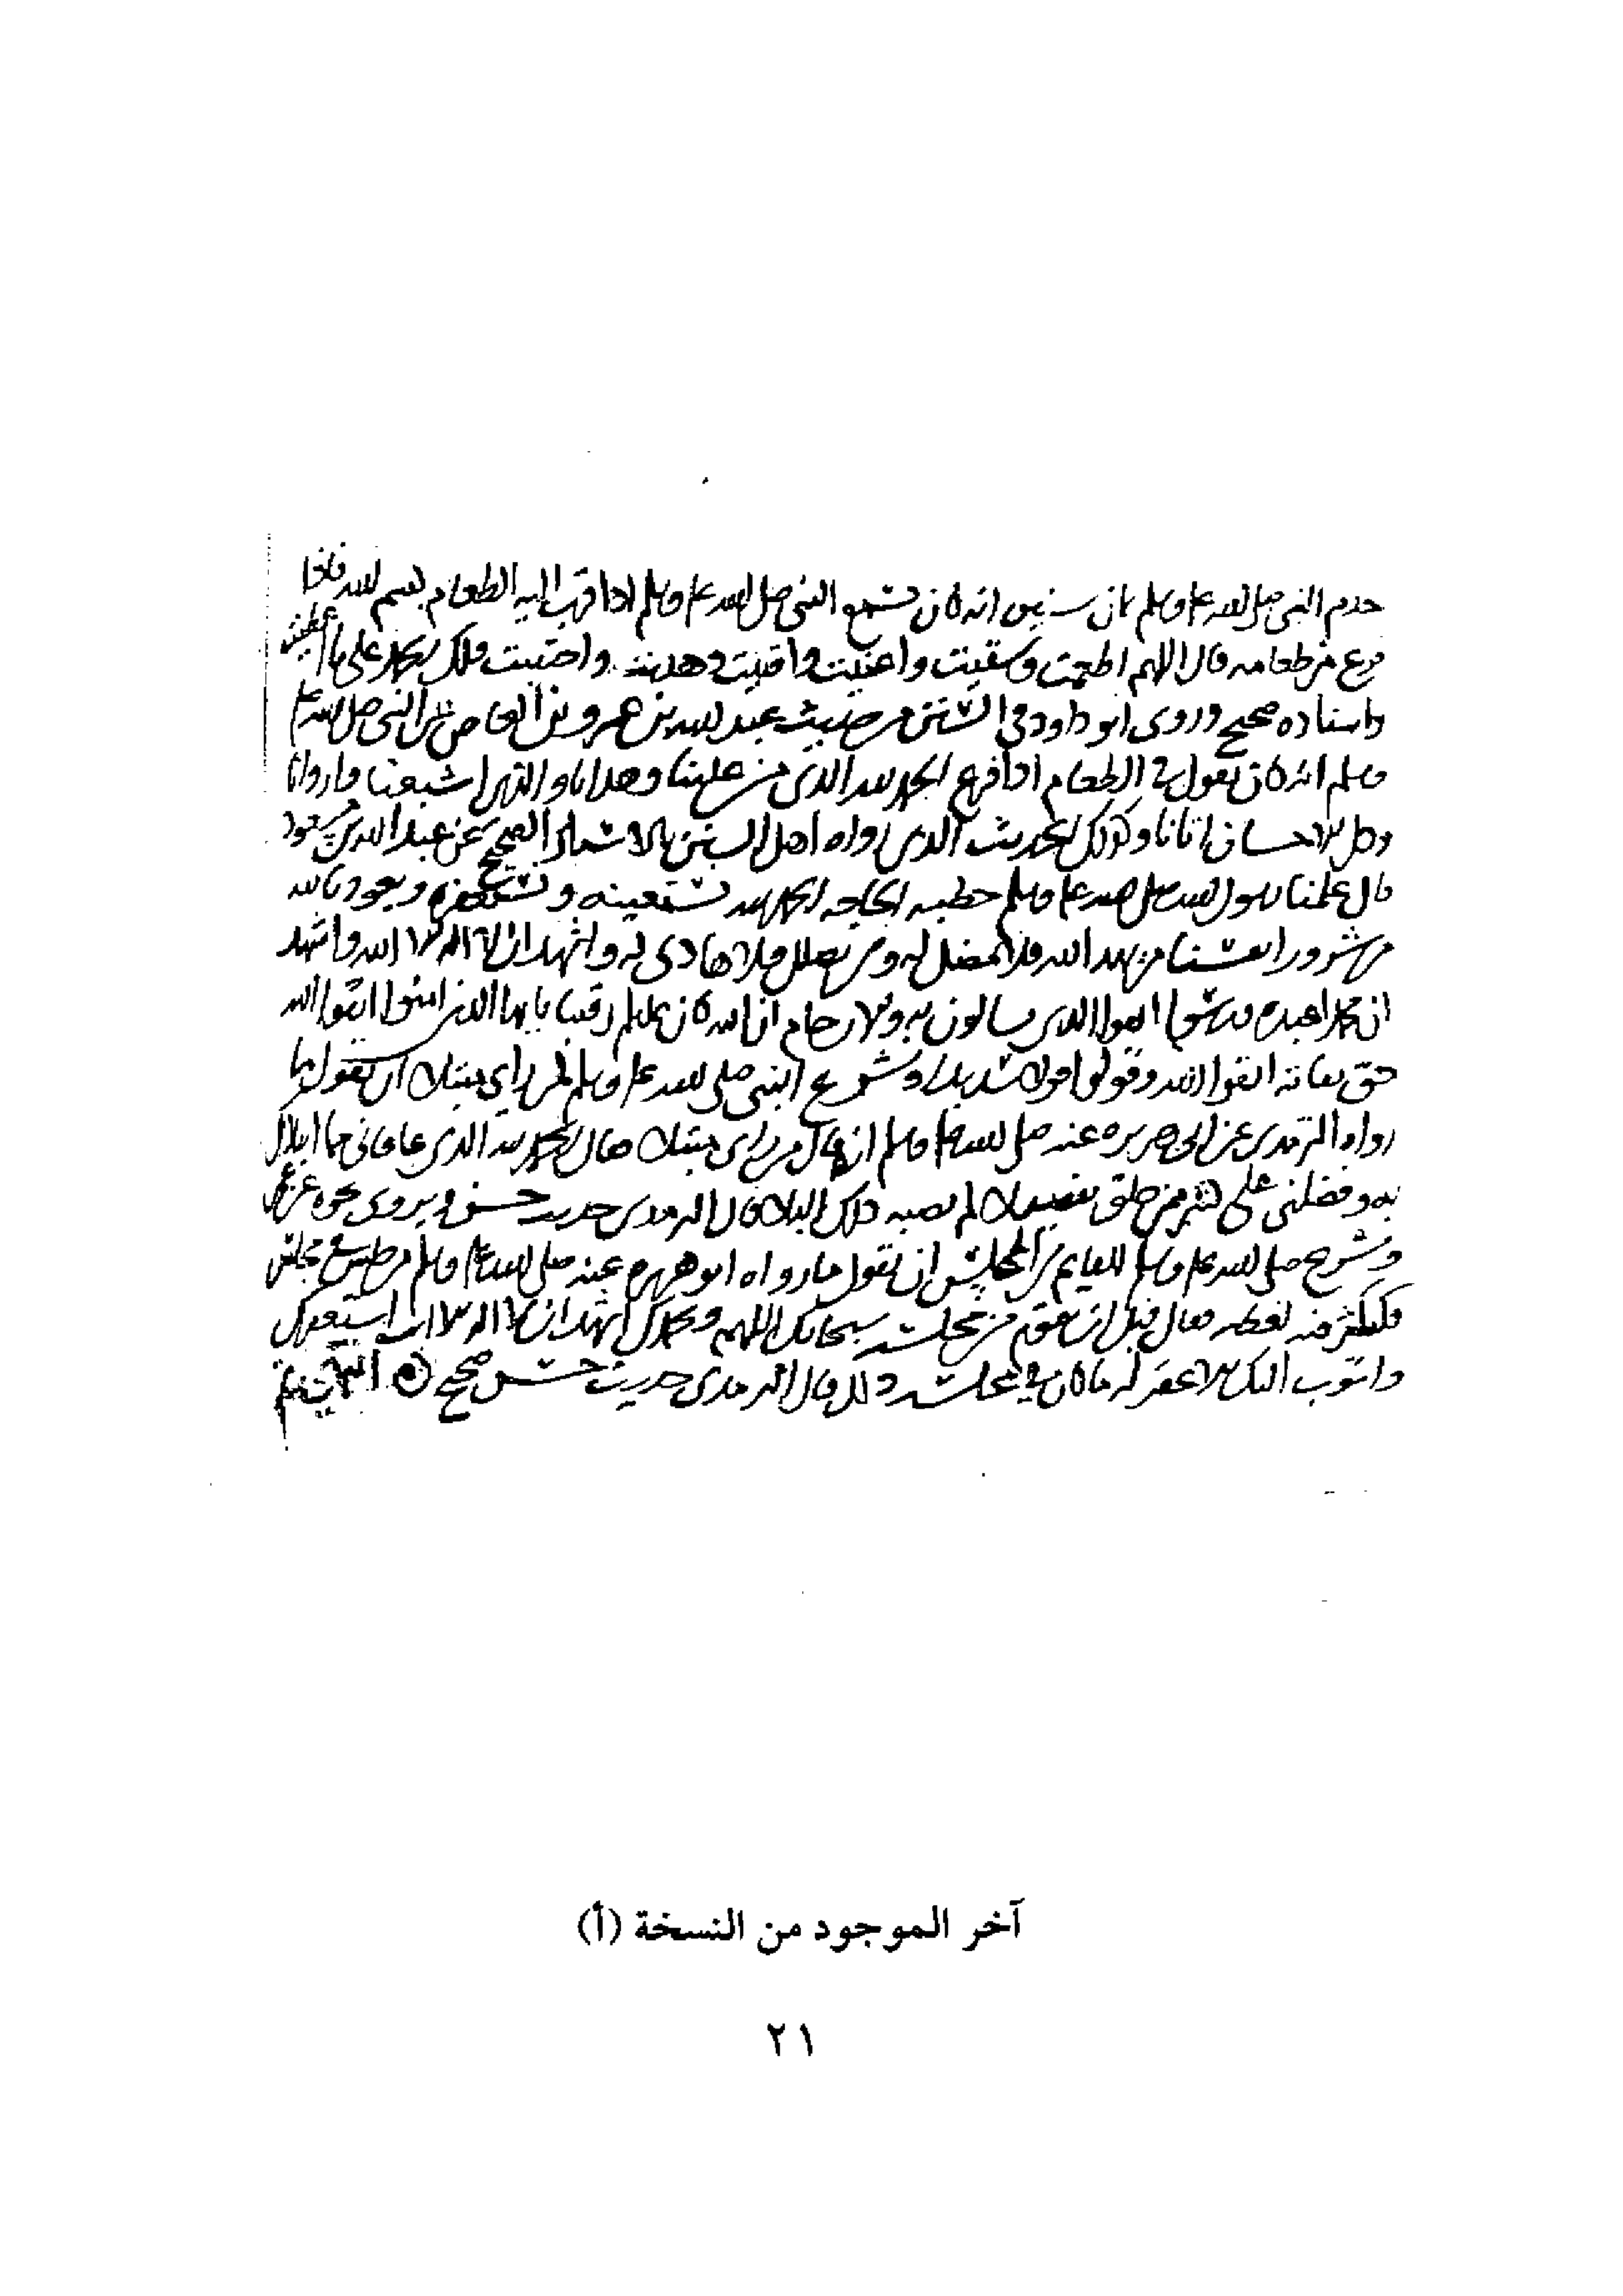 خدم النبي صلى الله عليه وسلم ثمان سنين انه كان يسمع النبي صلى الله عليه وسلم اذا قرب اليه الطعام بسم الله فاذا
فرغ من طعامه قال اللهم اطعمت وسقيت واغنيت واقنيت وهديت واحييت فلك الحمد على ما اعطيت
واسناده صحيح وروى ابو داود في السنن من حديث عبد الله بن عمرو بن العاص عن النبي صلى الله عليه
وسلم انه كان يقول في الطعام اذا فرغ الحمد لله الذي من علينا وهدانا والذي اشبعنا واروانا
وكل الاحسان اتانا وكذلك الحديث الذي رواه اهل السنن بالاسناد الصحيح عن عبد الله بن مسعود
قال علمنا رسول الله صلى الله عليه وسلم خطبه الحاجه الحمد لله نستعينه ونستغفره ونعوذ بالله
من شرور انفسنا من يهد الله فلا مضل له ومن يضلل فلا هادي له واشهد ان لا اله الا الله واشهد
ان محمدا عبده ورسوله اتقوا الله الذي تسالون به والارحام ان الله كان عليكم رقيبا يا ايها الذين امنوا اتقوا الله
حق تقاته اتقوا الله وقولوا قولا سديدا وشرع النبي صلى الله عليه وسلم لمن راى مبتلا ان يقول ما
رواه الترمذي عن ابي هريره عنه صلى الله عليه وسلم انه قال من راى مبتلا فقال الحمد لله الذي عافاني مما ابتلاك
به وفضلني على كثير ممن خلق تفضيلا لم يصبه ذلك البلا قال الترمذي حديث حسن ويروى نحوه عن عمر
وشرع صلى الله عليه وسلم للقايم من المجلس ان يقول ما رواه ابو هريره عنه صلى الله عليه وسلم من جلس في مجلس
فكثر فيه لغطه فقال قبل ان يقوم من مجلسه سبحانك اللهم وبحمدك اشهد ان لا اله الا انت استغفرك
واتوب اليك الا غفر له ما كان في مجلسه ذلك قال الترمذي حديث حسن صحيح
آخر الموجود من النسخة (أ)
٢١